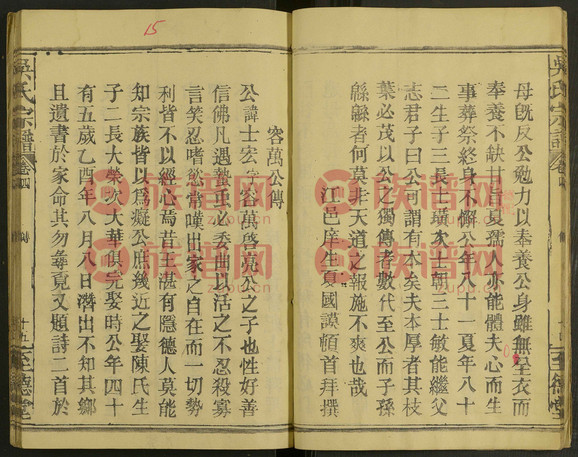 母既反公勉力以奉養公身雖無至衣而
奉養不缺甘旨夏孺人亦能體夫心而生
事葬祭終身不懈公年八十一夏年八十
二生子三長士璜次士朝三士敏能繼父
志君子曰公可謂有本矣夫本厚者其枝
葉必茂以公之獨傳者數代至公而子孫
緜緜者何莫非天道之報施不爽也哉
江邑庠生夏國謨頓首拜撰
容萬公傳
公諱士宏字容萬啓亮公之子也性好善
信佛凡遇蟄虫必委曲以活之不忍殺寡
言笑忍嗜欲常嘆出家之自在而一切勢
利皆不以經心焉昔王湛有隱德人莫能
知宗族皆以爲癡公庶幾近之娶陳氏生
子二長大榮次大華俱完娶時公年四十
有五歲乙酉年八月八日潛出不知其鄉
且遺書於家命其勿尋覓又題詩二首於
吳氏宗譜
卷四
傳
十五
至德堂
吳氏宗譜
卷四
傳
至德堂
15
族谱网
zupu.cn
族谱网
zupu.cn
族谱网
zupu.cn
族谱网
zupu.cn